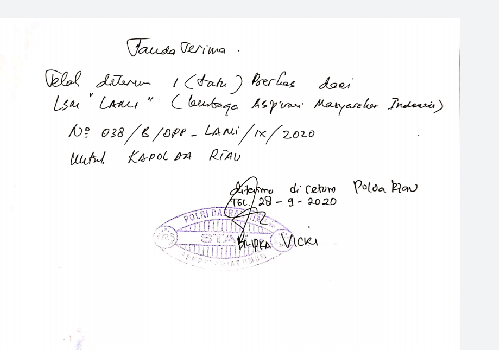 Tanda Terima.
Telah diterima 1 (satu) Berkas dari
LSM "LAMI" (Lembaga Aspirasi Masyarakat Indonesia)
No 038/B/DPP-LAMI/IX/2020
Untuk KAPOLDA RIAU
diterima di setum Polda Riau
TGL/28-9-2020
POLRI DAERAH RIAU
SETUM
BRIPKA Vicki